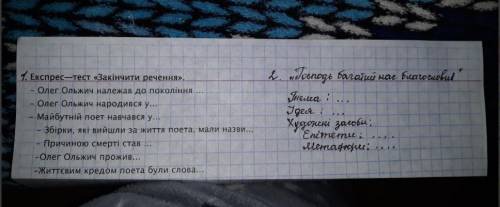 1. Експрес—тест «Закінчити речення».
- Олег Ольжич належав до покоління ....
- Олег Ольжич народився у...
- Майбутній поет навчався у...
- Збірки, які вийшли за життя поета, мали назви...
- Причиною смерті став ...
-Олег Ольжич прожив...
-Життєвим кредом поета були слова...
2. „Господь багатий нас благословив"
Тема : ...
Ідея : ...
Художні засоби:
Епітети: ....
Метафори: ....